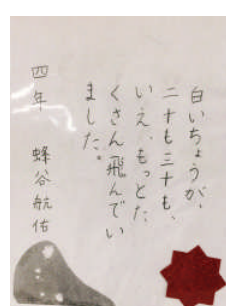 白いちょうが、
二十も三十も、
いえ、もっとた
くさん飛んでい
ました。
四年　蜂谷航佑